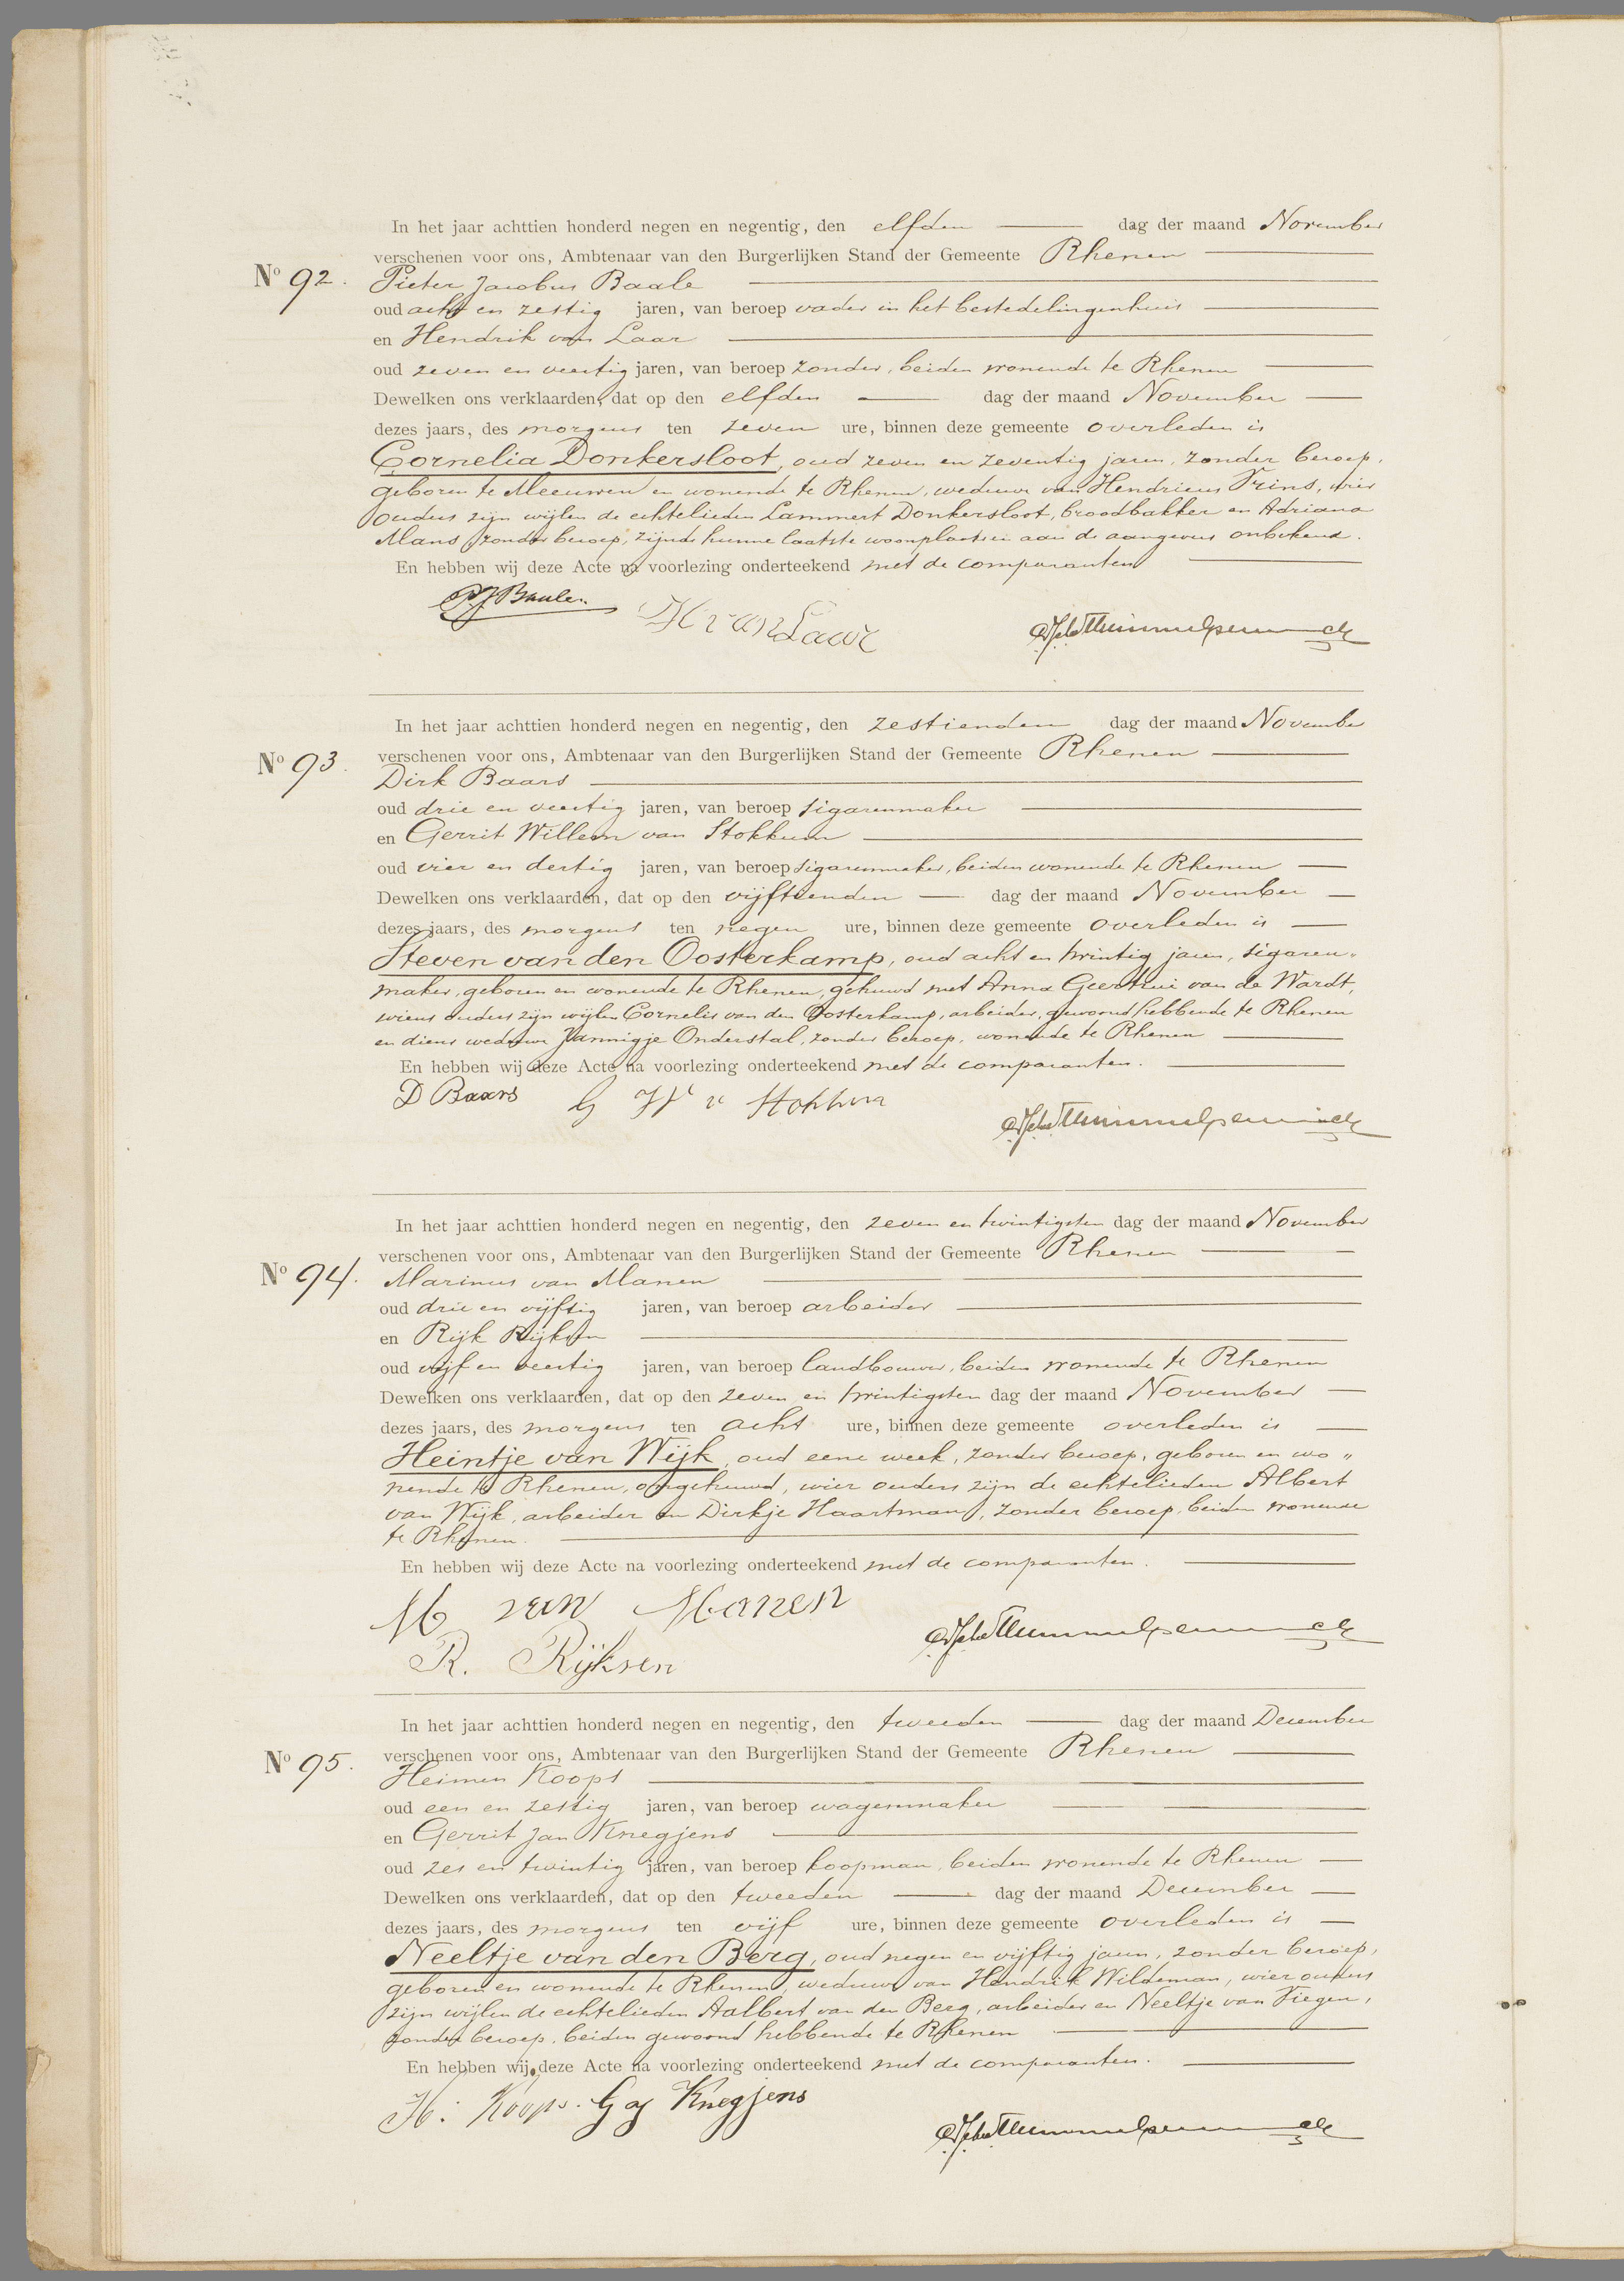 In het jaar achttien honderd negen en negentig, den elfden dag der maand November
verschenen voor ons, Ambtenaar van den Burgerlijken Stand der Gemeente Rhenen
No 92. Pieter Jacobus Baale
oud acht en zestig jaren, van beroep vader in het bestedelingenhuis
en Hendrik van Laar
oud zeven en veertig jaren, van beroep zonder, beiden wonende te Rhenen
Dewelken ons verklaarden, dat op den elfden dag der maand November
dezes jaars, des morgens ten zeven ure, binnen deze gemeente overleden is
Cornelia Donkersloot, oud zeven en zeventig jaren, zonder beroep,
geboren te Meeuwen en wonende te Rhenen, weduwe van Hendricus Prins, wier
ouders zijn wijlen de echtelieden Lammert Donkersloot, broodbakker en Adriana
Mans zonder beroep, zijnde hunne laatste woonplaatsen aan de aangevers onbekend.
En hebben wij deze Acte na voorlezing onderteekend met de comparanten
PJ Baale. H van Laar
In het jaar achttien honderd negen en negentig, den zestienden dag der maand November
verschenen voor ons, Ambtenaar van den Burgerlijken Stand der Gemeente Rhenen
No 93. Dirk Baars
oud drie en veertig jaren, van beroep sigarenmaker
en Gerrit Willem van Stokkum
oud vier en dertig jaren, van beroep sigarenmaker, beiden wonende te Rhenen
Dewelken ons verklaarden, dat op den vijftienden dag der maand November
dezes jaars, des morgens ten negen ure, binnen deze gemeente overleden is
Steven van den Oosterkamp, oud acht en twintig jaren, sigaren„
maker, geboren en wonende te Rhenen, gehuwd met Anna Geertrui van de Wardt,
wiens ouders zijn wijlen Cornelis van den Oosterkamp, arbeider, gewoond hebbende te Rhenen
en diens weduwe Jannigje Onderstal, zonder beroep, wonende te Rhenen
En hebben wij deze Acte na voorlezing onderteekend met de comparanten.
D Baars G W v Stokkum
In het jaar achttien honderd negen en negentig, den zeven en twintigsten dag der maand November
verschenen voor ons, Ambtenaar van den Burgerlijken Stand der Gemeente Rhenen
No 94. Marinus van Manen
oud drie en vijftig jaren, van beroep arbeider
en Rijk Rijksen
oud vijf en veertig jaren, van beroep landbouwer, beiden wonende te Rhenen
Dewelken ons verklaarden, dat op den zeven en twintigsten dag der maand November
dezes jaars, des morgens ten acht ure, binnen deze gemeente overleden is
Heintje van Wijk, oud eene week, zonder beroep, geboren en wo„
nende te Rhenen, ongehuwd, wier ouders zijn de echtelieden Albert
van Wijk, arbeider en Dirkje Haartman, zonder beroep, beiden wonende
te Rhenen.
En hebben wij deze Acte na voorlezing onderteekend met de comparanten.
M van Manen
R. Rijksen
In het jaar achttien honderd negen en negentig, den tweeden dag der maand December
verschenen voor ons, Ambtenaar van den Burgerlijken Stand der Gemeente Rhenen
No 95. Heimen Koops
oud een en zestig jaren, van beroep wagenmaker
en Gerrit Jan Knegjens
oud zes en twintig jaren, van beroep koopman, beiden wonende te Rhenen
Dewelken ons verklaarden, dat op den tweeden dag der maand December
dezes jaars, des morgens ten vijf ure, binnen deze gemeente overleden is
Neeltje van den Berg, oud negen en vijftig jaren, zonder beroep,
geboren en wonende te Rhenen, weduwe van Hendrik Wildeman, wier ouders
zijn wijlen de echtelieden Aalbert van den Berg, arbeider en Neeltje van Viegen,
zonder beroep, beiden gewoond hebbende te Rhenen
En hebben wij deze Acte na voorlezing onderteekend met de comparanten.
H: Koops. G J Knegjens